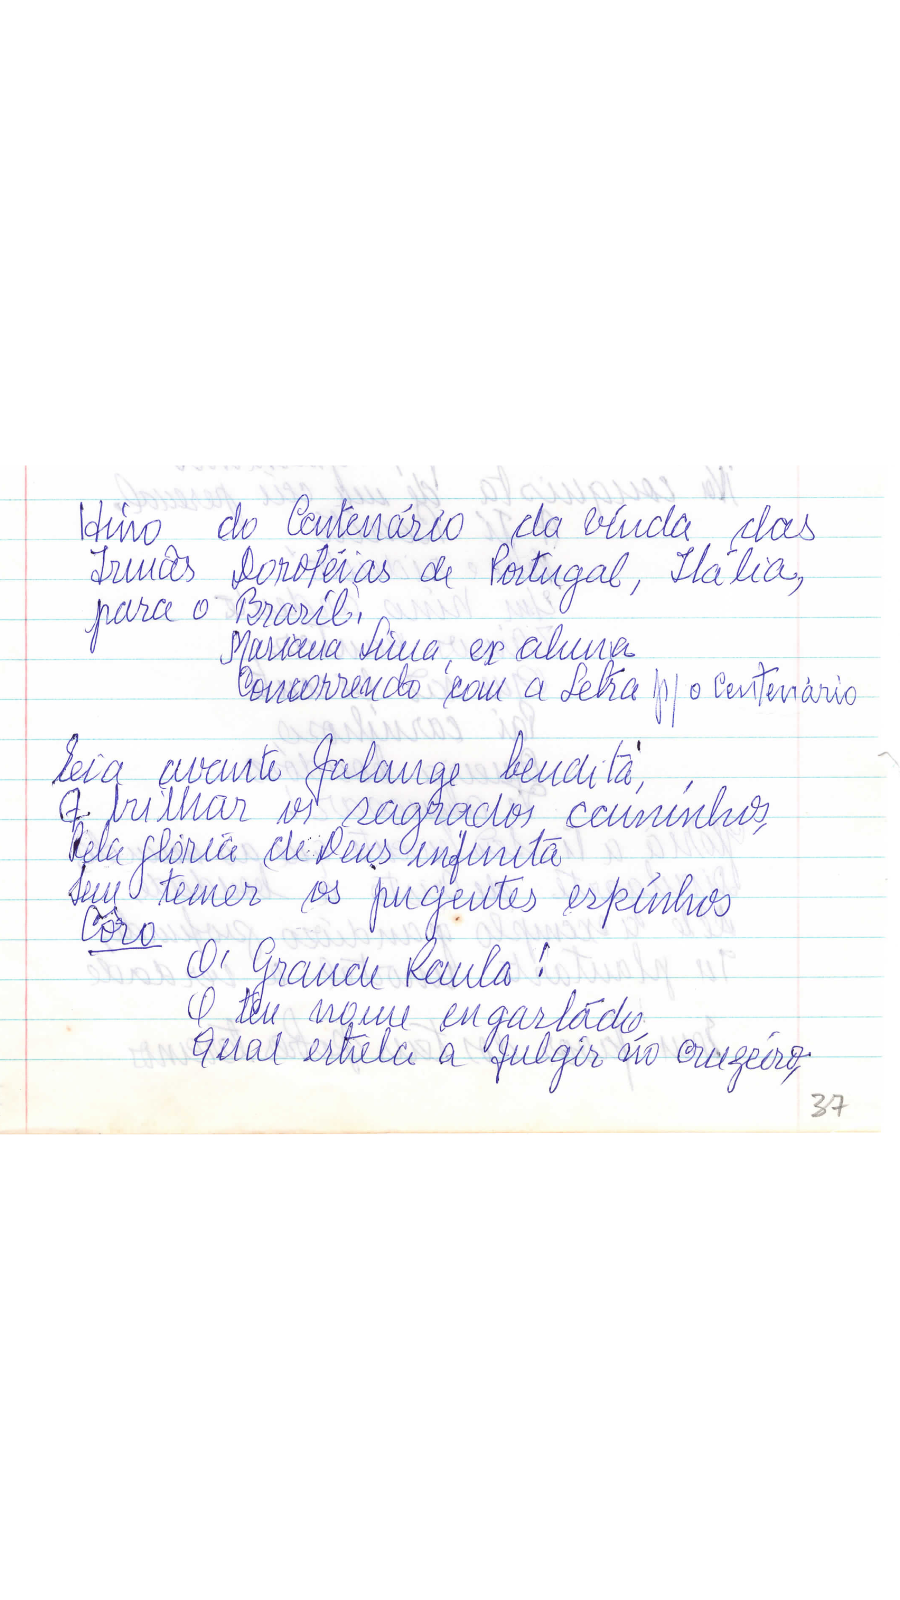 Hino do Centenário da vinda das
Irmãs Dorotéias de Portugal, Itália,
para o Brazil.
Mariana Lima, ex aluna
Concorrendo com a Letra p/ o Centenário
Eia avante falange bendita,
A trilhar os sagrados caminhos,
Pela glória de Deus infinita
Sem temer os pugentes espinhos
Côro
O! Grande Paula!
O teu nome engastado
Qual estrela a fulgir no cruzeiro,
37